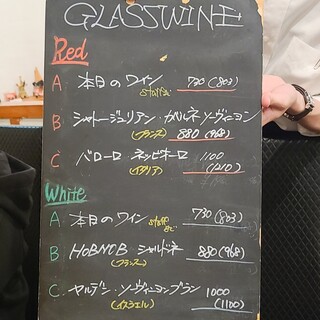 GLASSWINE
Red
A 本日のワイン 730 (803)
B シャトージュリアン・カベルネ・ソーヴィニヨン
(フランス) 880 (968)
C バローロ ネッビオーロ 1100
(イタリア) (1210)
White
A 本日のワイン 730 (803)
B HOBNOB シャルドネ 880 (968)
(フランス)
C. ヤルデン・ソーヴィニヨンブラン 1000
(イスラエル) (1100)